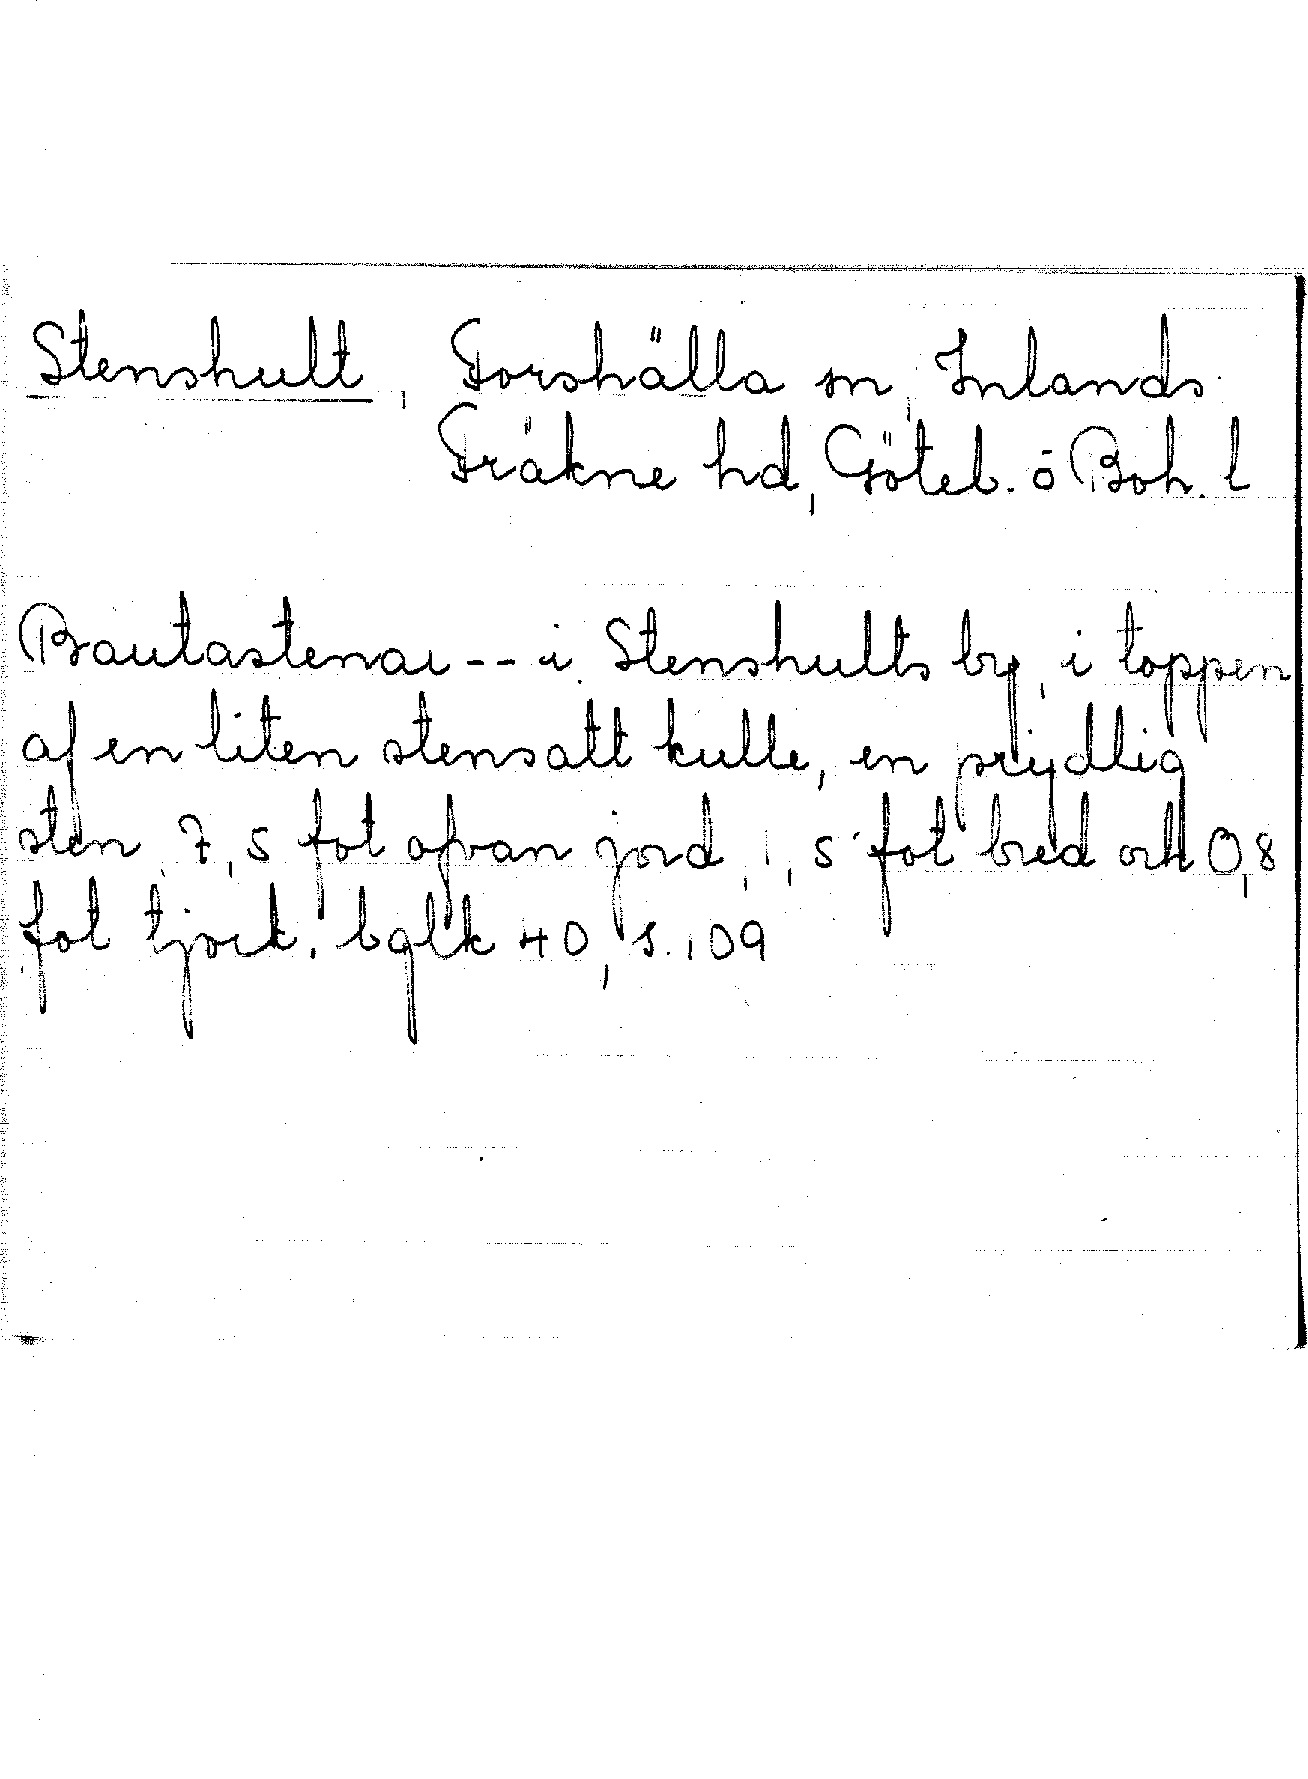 Stenshult, Forshälla sn, Inlands
Fräkne hd, Göteb. o Boh. l
Bautastenar -- i Stenshults by, i toppen
af en liten stensatt kulle, en prydlig
sten, 7,5 fot ofvan jord, 1,5 fot bred och 0,8
fot tjock. bglk 40, s. 109